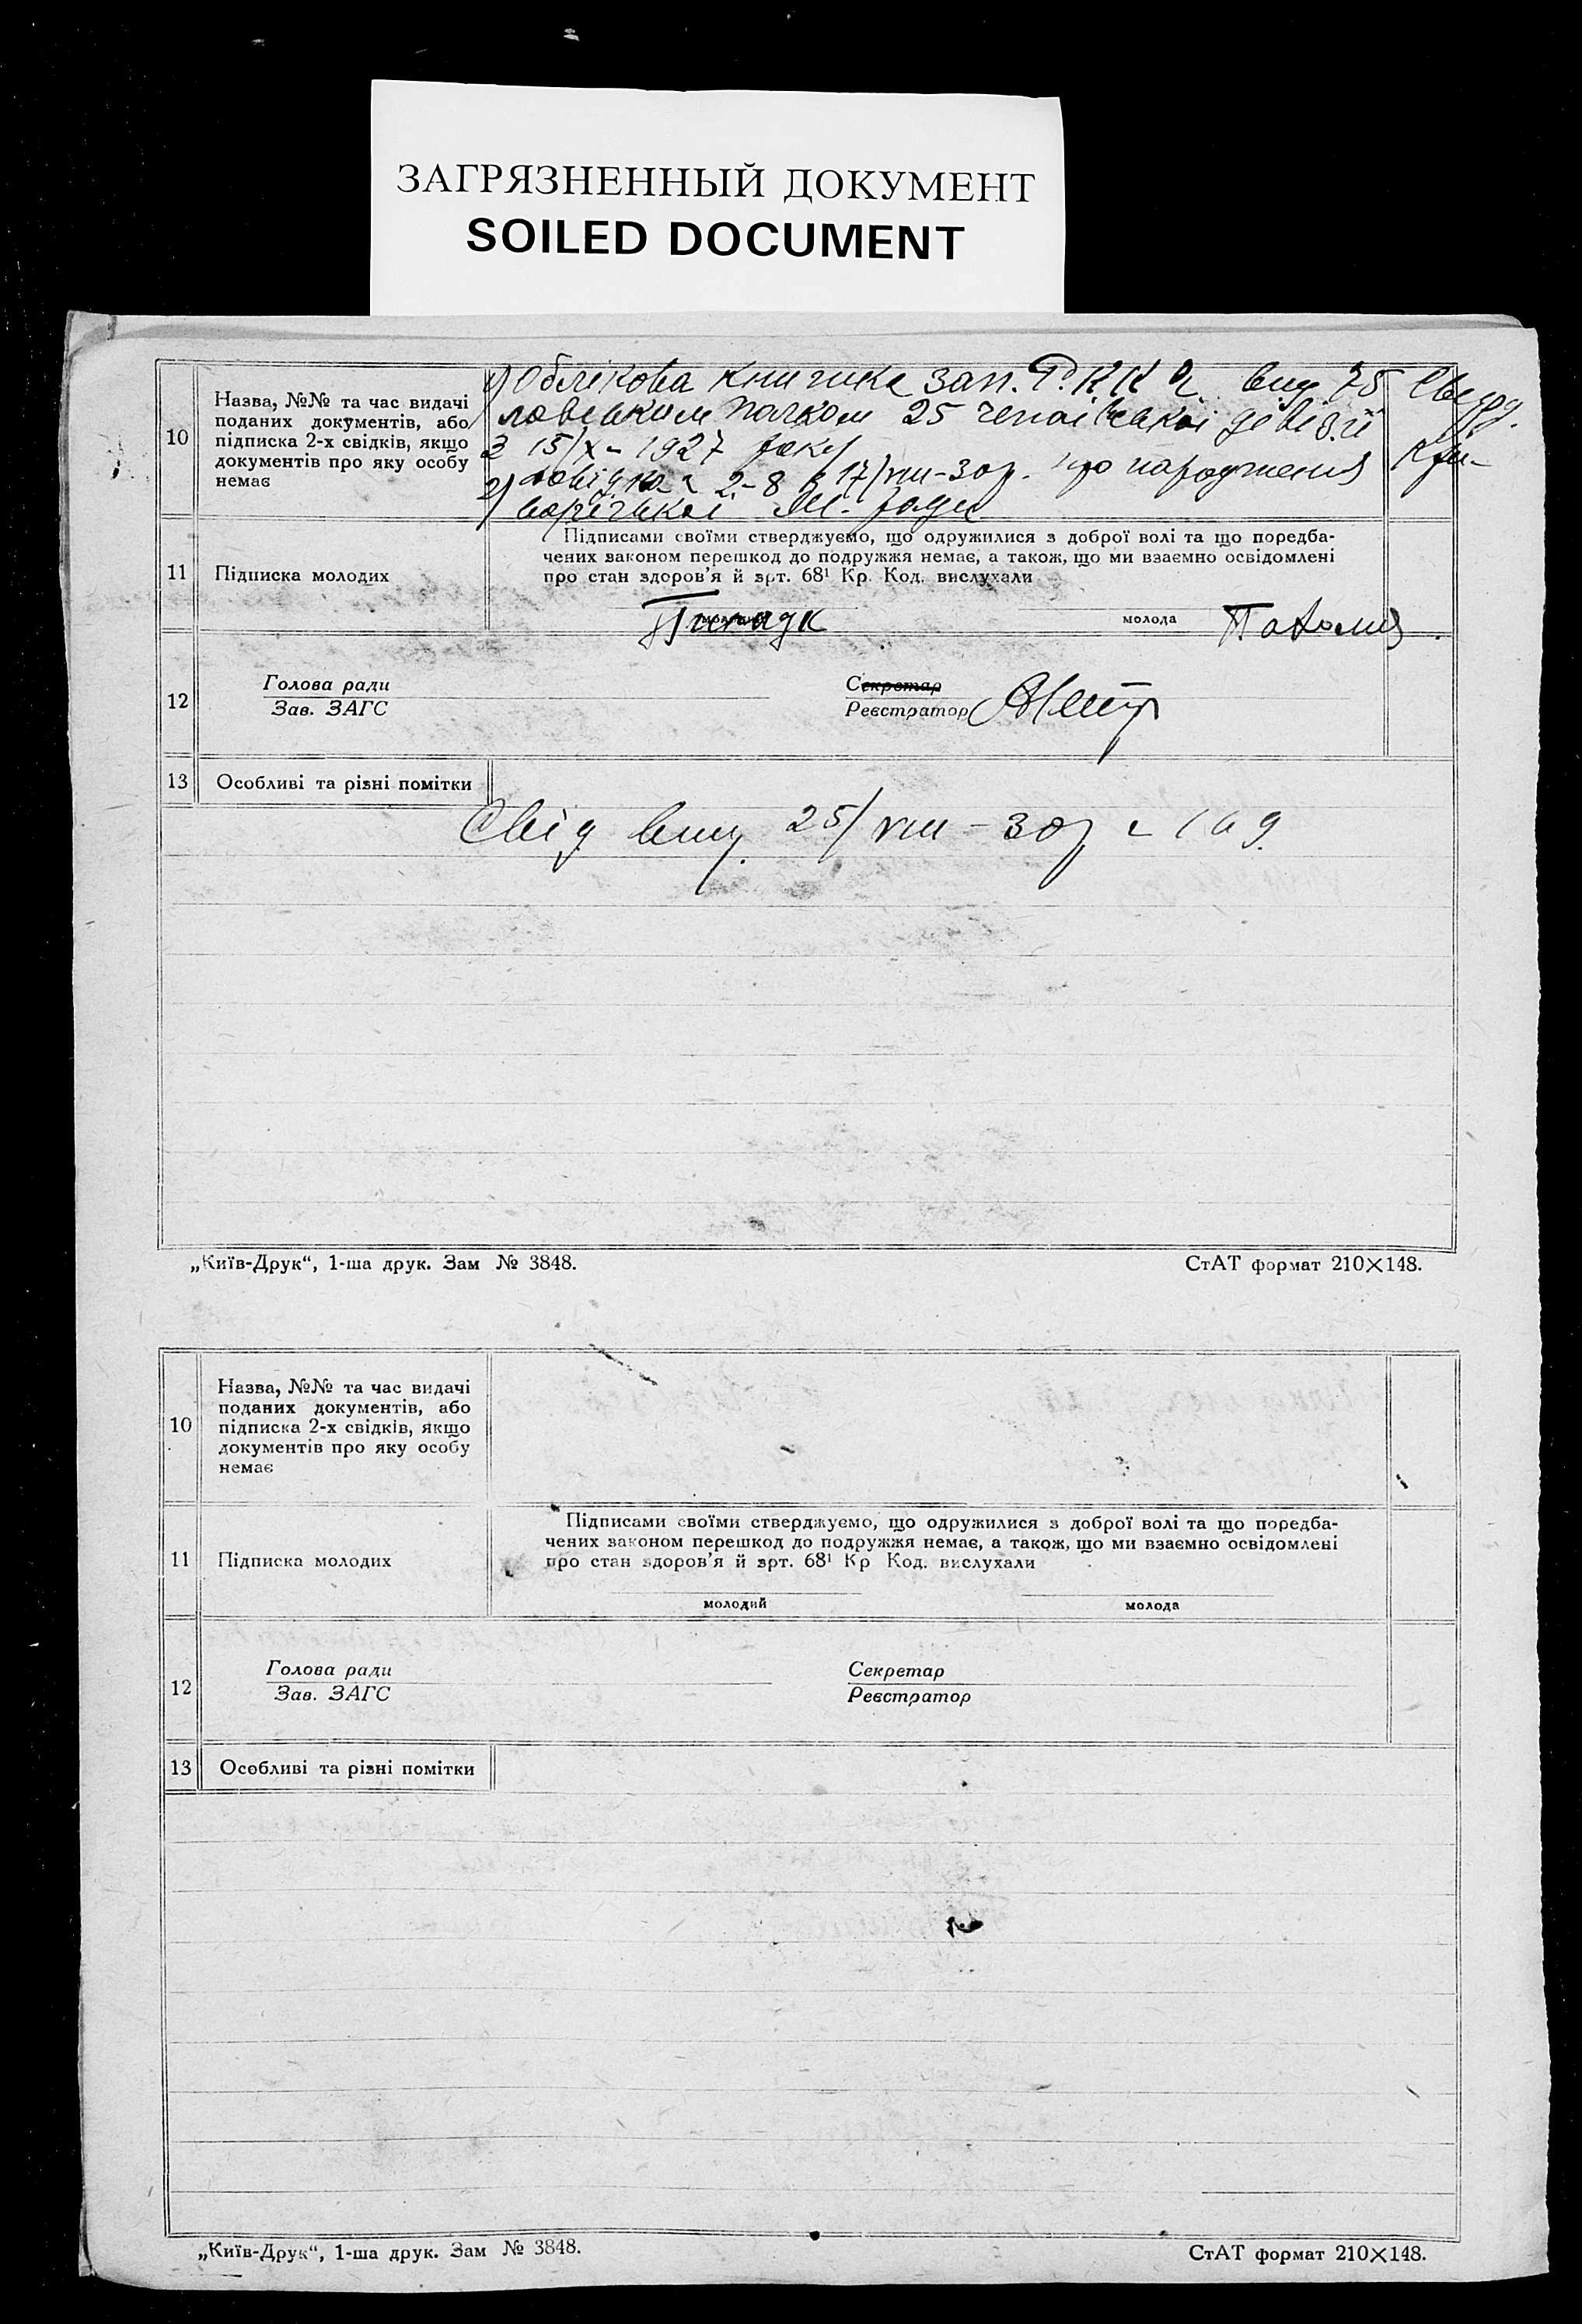 ЗАГРЯЗНЕННЫЙ ДОКУМЕНТ
SOILED DOCUMENT
10
Назва, №№ та час видачі
поданих документів, або
підписка 2-х свідків, якщо
документів про яку особу
немає
1) Облікова книжка зап. Р.К.К.А. вид. 75 Сверд
ловським полком 25 дівізії
з 15/X-1927 року
2) довідка 2-8 з 17/VIII-30р. про народження Кри-
ворізької м. ради
11
Підписка молодих
Підписами своїми стверджуємо, що одружилися з доброї волі та що поредба-
чених законом перешкод до подружжя немає, а також, що ми взаємно освідомлені
про стан здоров'я й зрт. 68¹ Кр. Код. вислухали
молода
12
Голова ради
Зав. ЗАГС
Секретар
Реєстратор
13
Особливі та різні помітки
Свід вид. 25/VIII-30р
„Київ-Друк“, 1-ша друк. Зам № 3848.
СтАТ формат 210×148.
10
Назва, №№ та час видачі
поданих документів, або
підписка 2-х свідків, якщо
документів про яку особу
немає
11
Підписка молодих
Підписами своїми стверджуємо, що одружилися з доброї волі та що поредба-
чених законом перешкод до подружжя немає, а також, що ми взаємно освідомлені
про стан здоров'я й зрт. 68¹ Кр Код. вислухали
молодий
молода
12
Голова ради
Зав. ЗАГС
Секретар
Реєстратор
13
Особливі та різні помітки
„Київ-Друк“, 1-ша друк. Зам № 3848.
СтАТ формат 210×148.